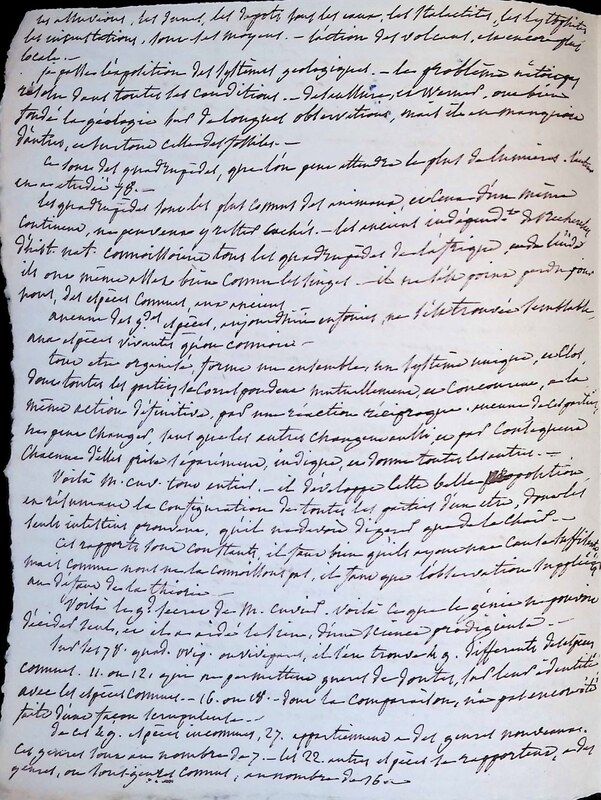 les alluvions, les dunes, les dépots sous les eaux, les stalactites, les lythophites
les incrustations, sont ses moyens. – l'action des volcans, est encor plus
locale. –
je passe l'exposition des systèmes géologiques. – le problème n'étoit pas
résolu dans toutes ses conditions. – desaussure, et Werner, ont bien
fondé la géologie sur de longues observations, mais ils en manquoient
d'autres, et surtout celle des fossiles. –
Ce sont des quadrupèdes, que l'on peut attendre le plus de lumières. l'auteur
en a étudié 78. –
les quadrupèdes sont les plus connus des animaux, et ceux d'un même
continent, ne peuvent y rester cachés. – les anciens indépend.t de recherches
d'hist. nat. connoissoient tous les quadrupèdes de l'afrique, et de l'inde
ils ont même assez bien connu les singes – il ne s'est point perdu pour
nous, des espèces connues aux anciens.
aucune des g.des espèces, aujourd'hui enfouies, ne s'est trouvée semblable,
aux espèces vivantes qu'on connoit –
tout être organisé, forme un ensemble, un système unique, et clos,
dont toutes les parties se correspondent mutuellement, et concourent, à la
même action définitive, par une réaction réciproque. aucune de ces parties,
ne peut changer, sans que les autres changent aussi, et par conséquent
chacune d'elles prise séparément, indique, et donne toutes les autres. –
Voilà M. cuv. tout entier. – il développe cette belle proposition
en résumant la configuration de toutes les parties d'un être, dont les
seuls intestins prouvent, qu'il ne devoit digérer que de la chair. –
Ces rapports sont constants, il faut bien qu'ils ayent une cause suffisante,
mais comme nous ne la connoissons pas, il faut que l'observation supplée
au défaut de la théorie –
Voilà le g.d secret de M. cuvier. voilà ce que le génie ne pouvoit
décider seul, et il a aidé le sien, d'une science prodigieuse –
Sur les 78. quad. ovip. ou vivipares, il s'en trouve 49. différents des espèces
connues. 11. ou 12. ayant ne permettent guères de doutes, sur leur identité
avec les espèces connues – 16. ou 18. dont la comparaison, n'a pas encor été
faite d'une façon scrupuleuse –
de ces 49. espèces inconnues, 27. appartiennent a des genres nouveaux.
Ces genres sont au nombre de 7. – les 22. autres espèces se rapportent, a des
genres, ou sous-genres connus, au nombre de 16. –